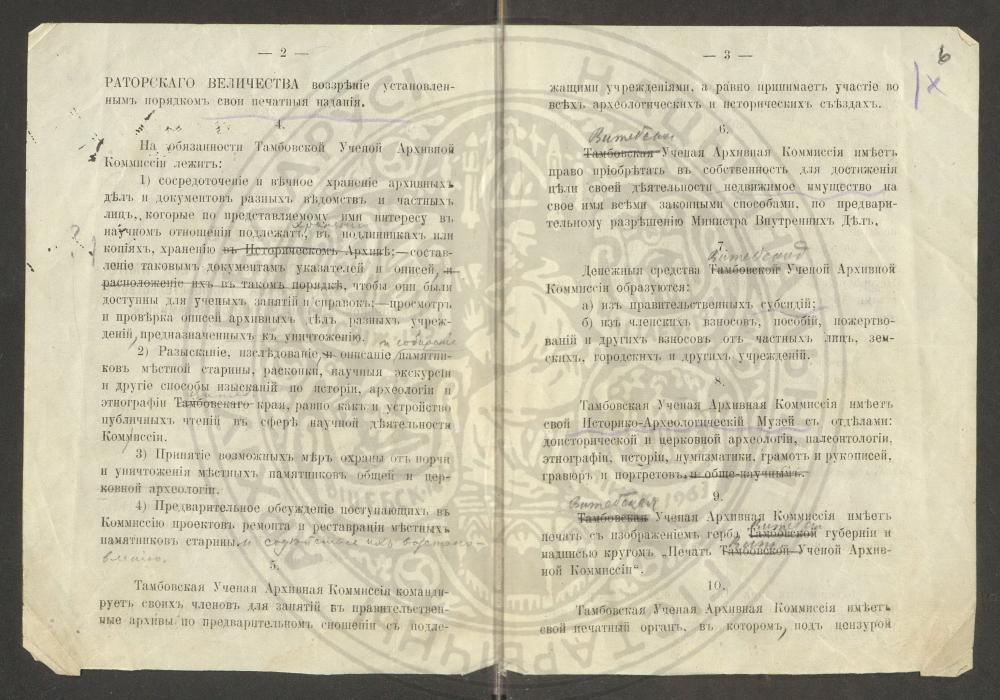 — 2 —
РАТОРСКАГО ВЕЛИЧЕСТВА воззрѣніе установлен-
нымъ порядкомъ свои печатныя изданія.
4.
На обязанности Тамбовской Ученой Архивной
Коммиссіи лежитъ:
1) сосредоточеніе и вѣчное храненіе архивныхъ
дѣлъ и документовъ разныхъ вѣдомствъ и частныхъ
лицъ, которые по представляемому ими интересу въ
научномъ отношеніи подлежатъ, въ подлинникахъ или
копіяхъ, храненію въ Историческомъ Архивѣ;—состав-
леніе таковымъ документамъ указателей и описей, и
расположеніе ихъ въ такомъ порядкѣ, чтобы они были
доступны для ученыхъ занятій и справокъ;—просмотръ
и провѣрка описей архивныхъ дѣлъ разныхъ учреж-
деній, предназначенныхъ къ уничтоженію.
и собираніе
2) Разысканіе, изслѣдованіе и описаніе памятни-
ковъ мѣстной старины, раскопки, научныя экскурсіи
и другіе способы изысканій по исторіи, археологіи и
этнографіи Тамбовскаго края, равно какъ и устройство
публичныхъ чтеній въ сферѣ научной дѣятельности
Коммиссіи.
3) Принятіе возможныхъ мѣръ охраны отъ порчи
и уничтоженія мѣстныхъ памятниковъ общей и цер-
ковной археологіи.
4) Предварительное обсужденіе поступающихъ въ
Коммиссію проектовъ ремонта и реставраціи мѣстныхъ
памятниковъ старины, и содѣйствіе ихъ возстано-
вленію.
5.
Тамбовская Ученая Архивная Коммиссія команди-
руетъ своихъ членовъ для занятій въ правительствен-
ные архивы по предварительномъ сношеніи съ подле-
— 3 —
6
x
жащими учрежденіями, а равно принимаетъ участіе во
всѣхъ археологическихъ и историческихъ съѣздахъ.
6.
Витебская
Тамбовская Ученая Архивная Коммиссія имѣетъ
право пріобрѣтать въ собственность для достиженія
цѣли своей дѣятельности недвижимое имущество на
свое имя всѣми законными способами, по предвари-
тельному разрѣшенію Министра Внутреннихъ Дѣлъ.
7.
Витебской
Денежныя средства Тамбовской Ученой Архивной
Коммиссіи образуются:
а) изъ правительственныхъ субсидій;
б) изъ членскихъ взносовъ, пособій, пожертво-
ваній и другихъ взносовъ отъ частныхъ лицъ, зем-
скихъ, городскихъ и другихъ учрежденій.
8.
Тамбовская Ученая Архивная Коммиссія имѣетъ
свой Историко-Археологическій Музей съ отдѣлами:
доисторической и церковной археологіи, палеонтологіи,
этнографіи, исторіи, нумизматики, грамотъ и рукописей,
гравюръ и портретовъ и обще-научнымъ.
9.
Витебская
Тамбовская Ученая Архивная Коммиссія имѣетъ
печать съ изображеніемъ герба Тамбовской губерніи и
надписью кругомъ „Печать Тамбовской Ученой Архив-
ной Коммиссіи“.
10.
Тамбовская Ученая Архивная Коммиссія имѣетъ
свой печатный органъ, въ которомъ, подъ цензурой